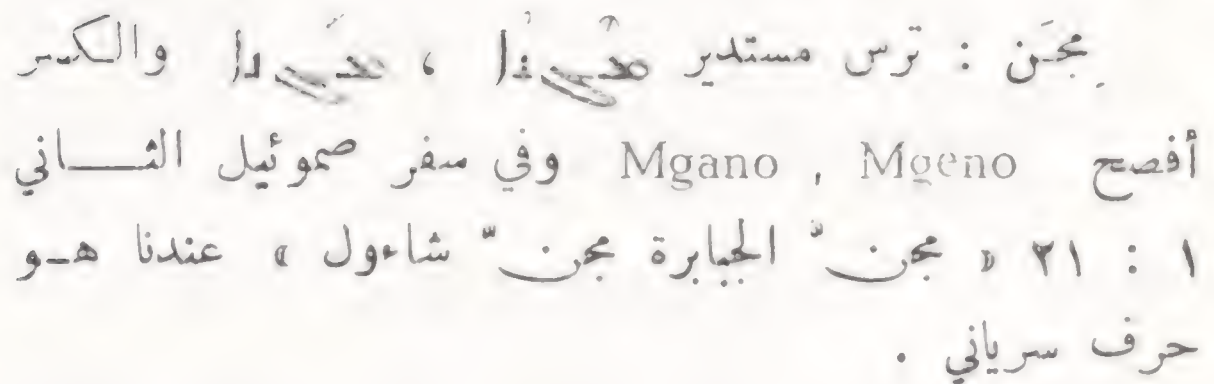 مِجَن : ترس مستدير ، والكسر
أفصح Mgano , Mgeno وفي سفر صموئيل الثــاني
١ : ٢١ « مجنّ الجبابرة مجنّ شاءول » عندنا هـو
حرف سرياني .